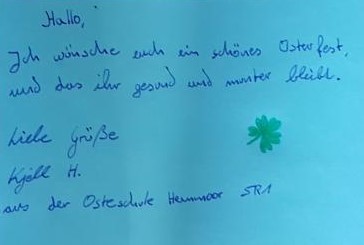 Hallo,
Ich wünsche euch ein schönes Osterfest,
und das ihr gesund und munter bleibt.
Liebe Grüße
Kjell H.
aus der Osteschule Hemmoor SR1